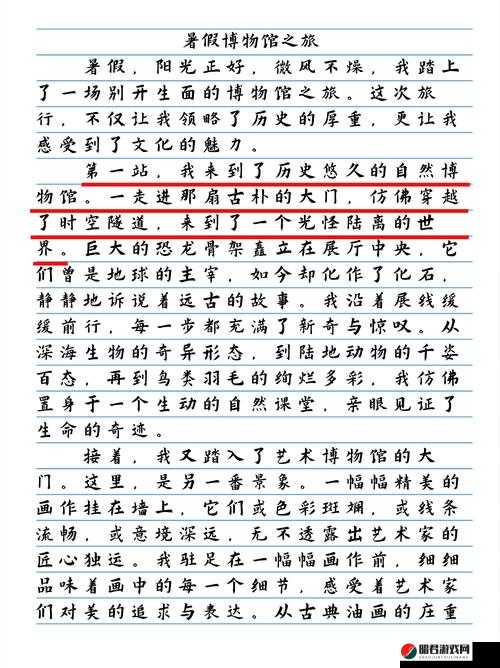 暑假博物馆之旅
暑假，阳光正好，微风不燥，我踏上
了一场别开生面的博物馆之旅。这次旅
行，不仅让我领略了历史的厚重，更让我
感受到了文化的魅力。
第一站，我来到了历史悠久的自然博
物馆。一走进那扇古朴的大门，仿佛穿越
了时空隧道，来到了一个光怪陆离的世
界。巨大的恐龙骨架矗立在展厅中央，它
们曾是地球的主宰，如今却化作了化石，
静静地诉说着远古的故事。我沿着展线缓
缓前行，每一步都充满了新奇与惊叹。从
深海生物的奇异形态，到陆地动物的千姿
百态，再到鸟类羽毛的绚烂多彩，我仿佛
置身于一个生动的自然课堂，亲眼见证了
生命的奇迹。
接着，我又踏入了艺术博物馆的大
门。这里，是另一番景象。一幅幅精美的
画作挂在墙上，它们或色彩斑斓，或线条
流畅，或意境深远，无不透露出艺术家的
匠心独运。我驻足在一幅幅画作前，细细
品味着画中的每一个细节，感受着艺术家
们对美的追求与表达。从古典油画的庄重
明君游戏网